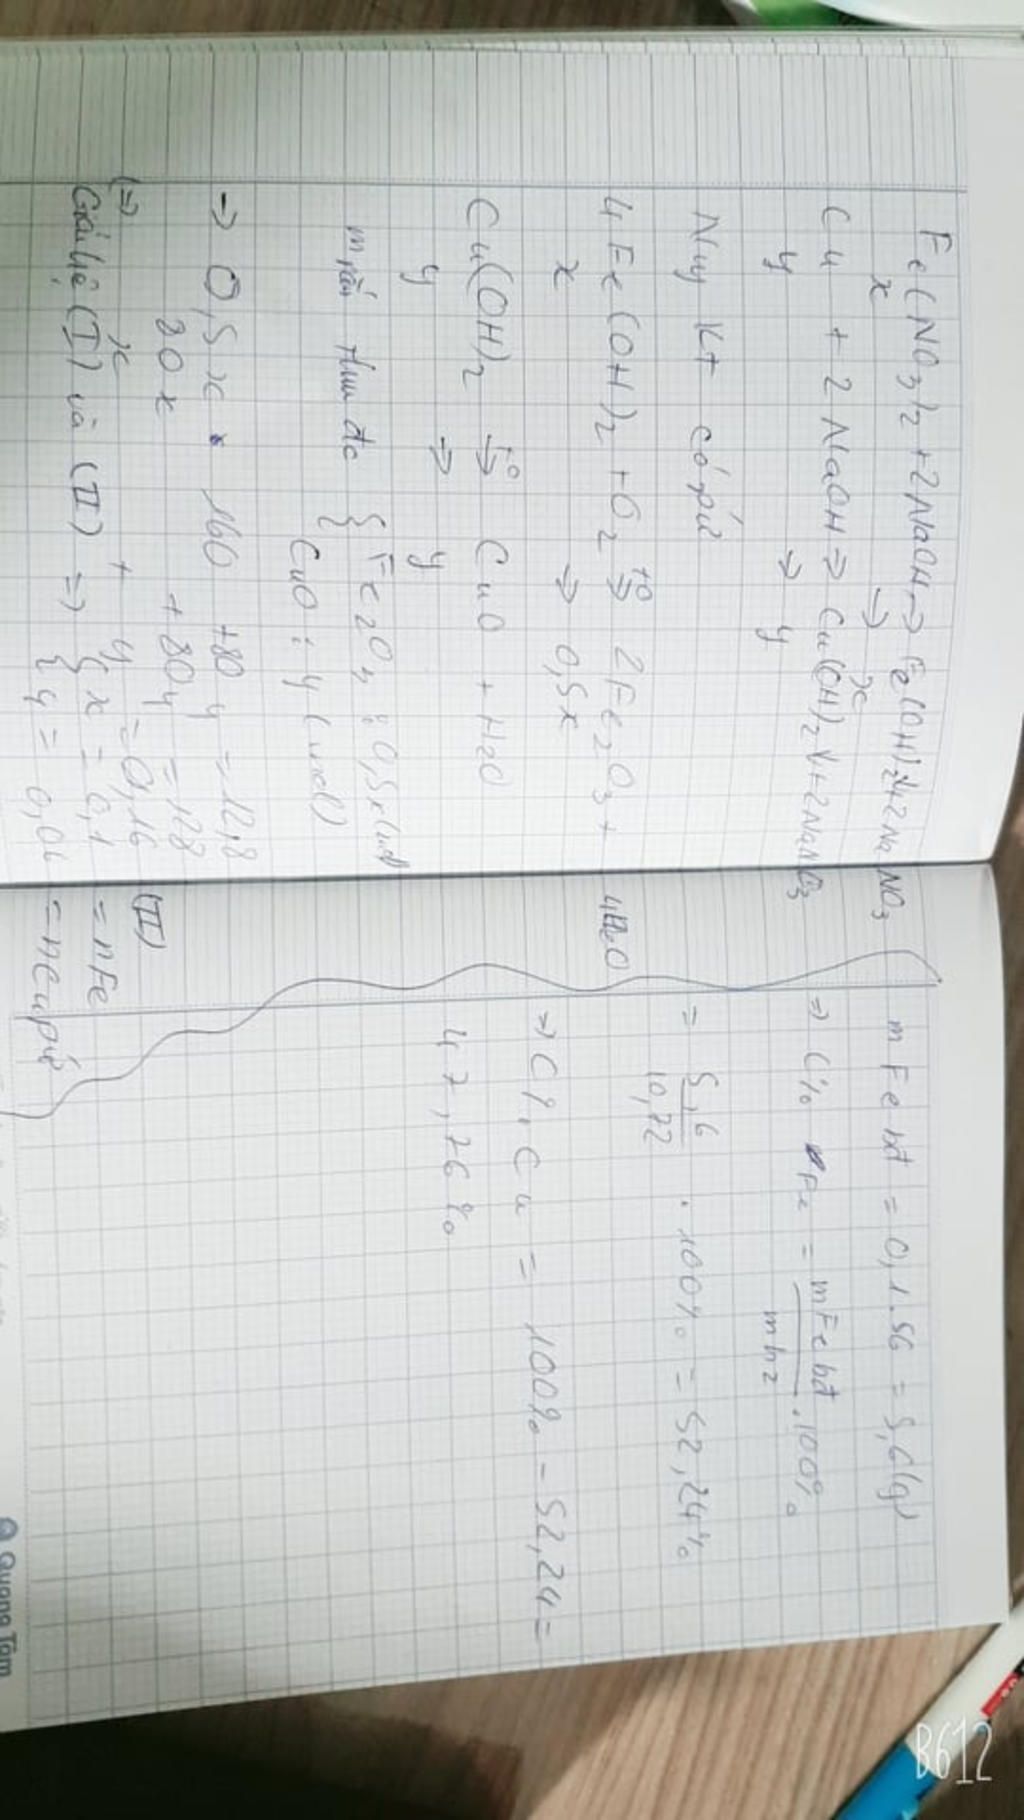 Fe(NO3)2 + 2NaOH → Fe(OH)2↓ + 2NaNO3
x → x
Cu + 2NaOH → Cu(OH)2↓ + 2NaNO3
y → y
Nung kt có pứ
4Fe(OH)2 + O2 t° → 2Fe2O3 + 4H2O
x → 0,5x
Cu(OH)2 t° → CuO + H2O
y → y
m rắn thu đc { Fe2O3 : 0,5x (mol)
CuO : y (mol)
→ 0,5x . 160 + 80y = 12,8
80x + 80y = 12,8
(=) x + y = 0,16 (II)
Giải hệ (I) và (II) => { x = 0,1 = nFe
{ y = 0,06 = nCu pứ
mFe bđ = 0,1.56 = 5,6(g)
=> C% Fe = mFe bđ / mh2 . 100%
= 5,6 / 10,72 . 100% = 52,24%
=> C% Cu = 100% - 52,24 =
47,76%
Quang Tâm
B612